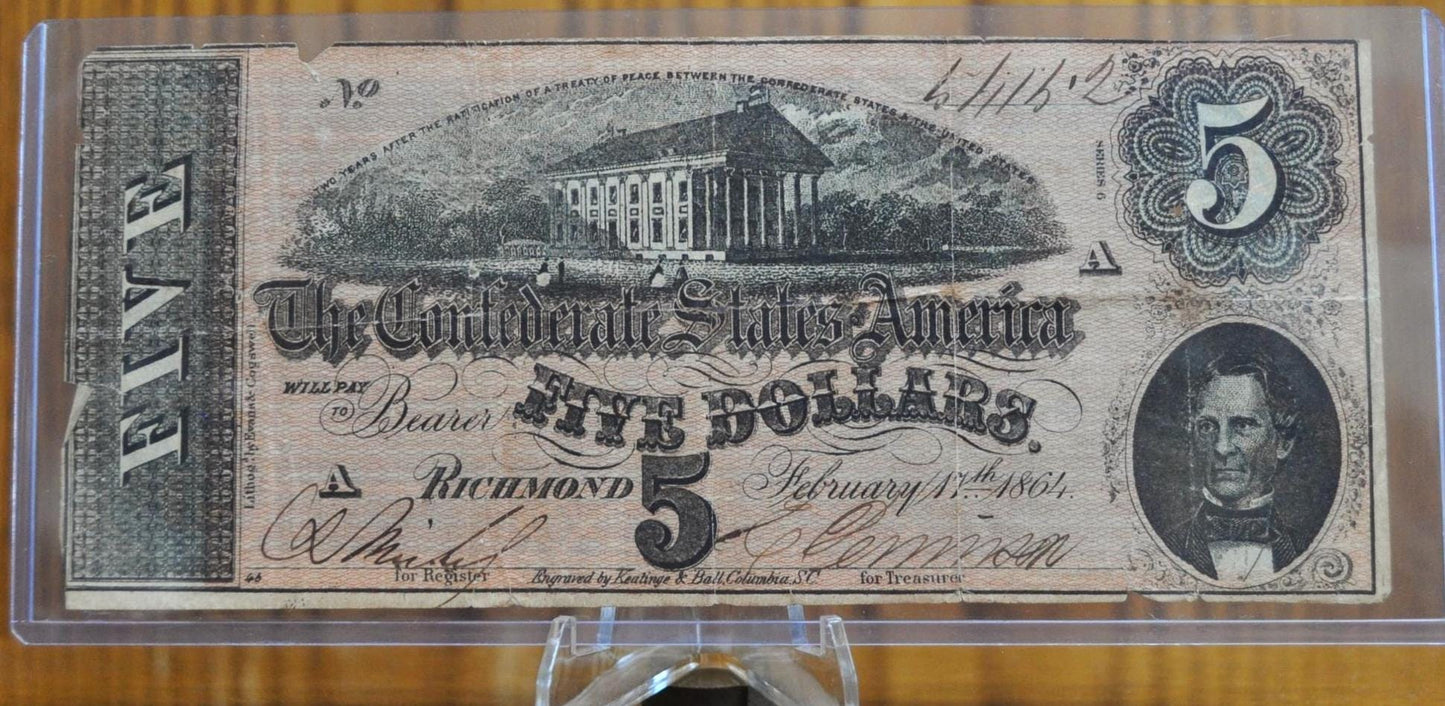 FIVE
No
TWO YEARS AFTER THE RATIFICATION OF A TREATY OF PEACE BETWEEN THE CONFEDERATE STATES & THE UNITED STATES
5
SERIES 6
A
The Confederate States of America
WILL PAY
TO Bearer FIVE DOLLARS.
A RICHMOND 5 February 17th 1864.
for Register Engraved by Keatinge & Ball, Columbia, S.C. for Treasurer
46
Lithog'd by Evans & Cogswell